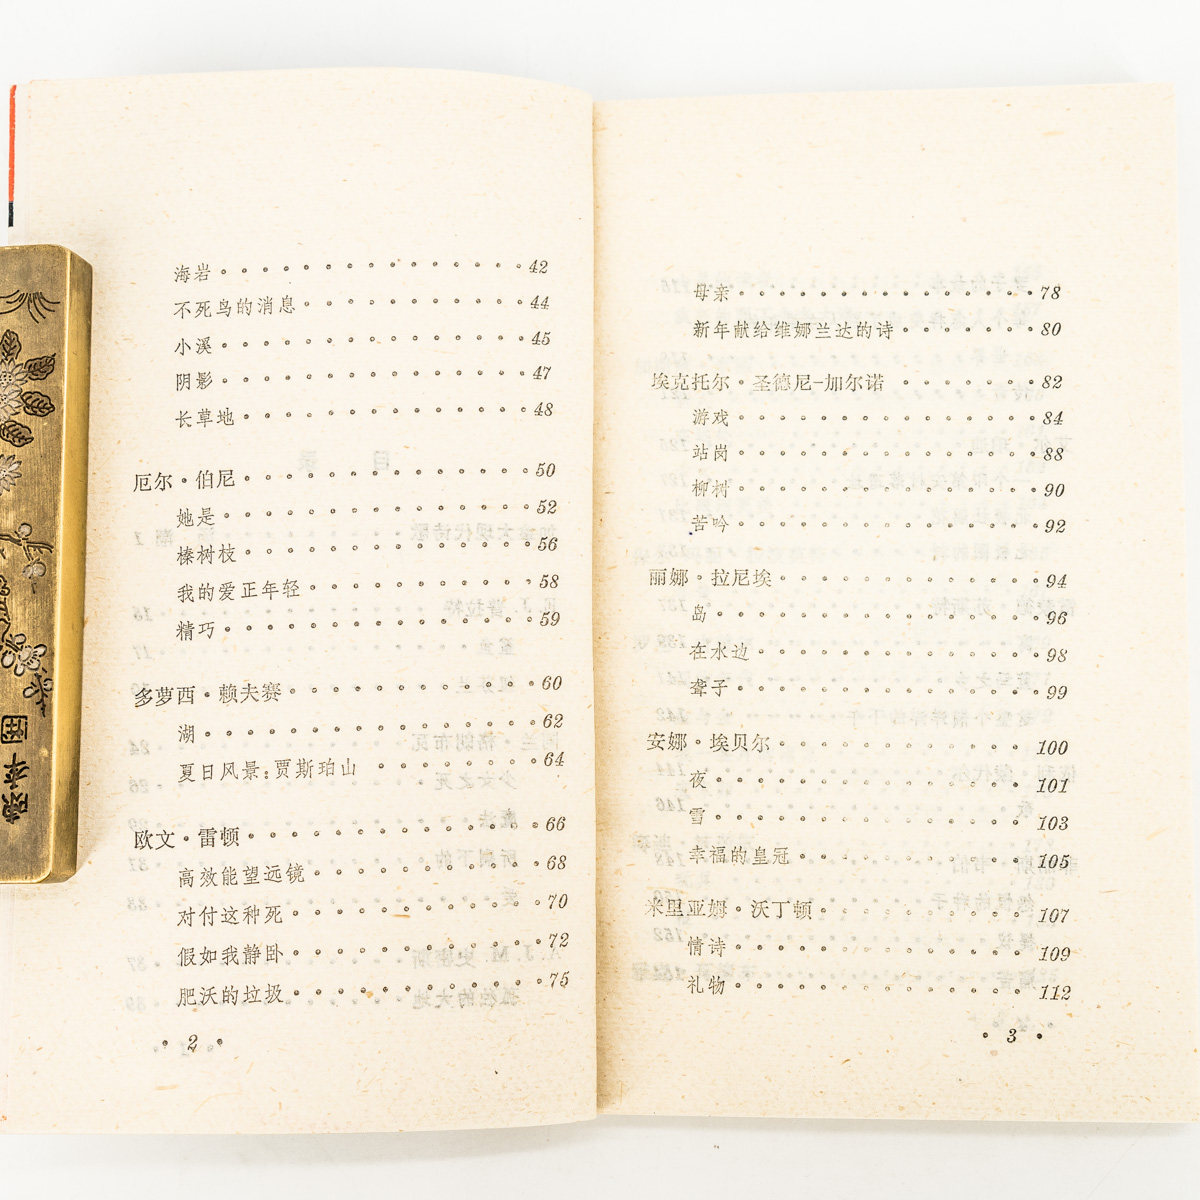 海岩 42
不死鸟的消息 44
小溪 45
阴影 47
长草地 48
厄尔·伯尼 50
她是 52
榛树枝 56
我的爱正年轻 58
精巧 59
多萝西·赖夫赛 60
湖 62
夏日风景：贾斯珀山 64
欧文·雷顿 66
高效能望远镜 68
对付这种死 70
假如我静卧 72
肥沃的垃圾 75
·2·
母亲 78
新年献给维娜兰达的诗 80
埃克托尔·圣德尼-加尔诺 82
游戏 84
站岗 88
柳树 90
苦吟 92
丽娜·拉尼埃 94
岛 96
在水边 98
聋子 99
安娜·埃贝尔 100
夜 101
雪 103
幸福的皇冠 105
米里亚姆·沃丁顿 107
情诗 109
礼物 112
·3·